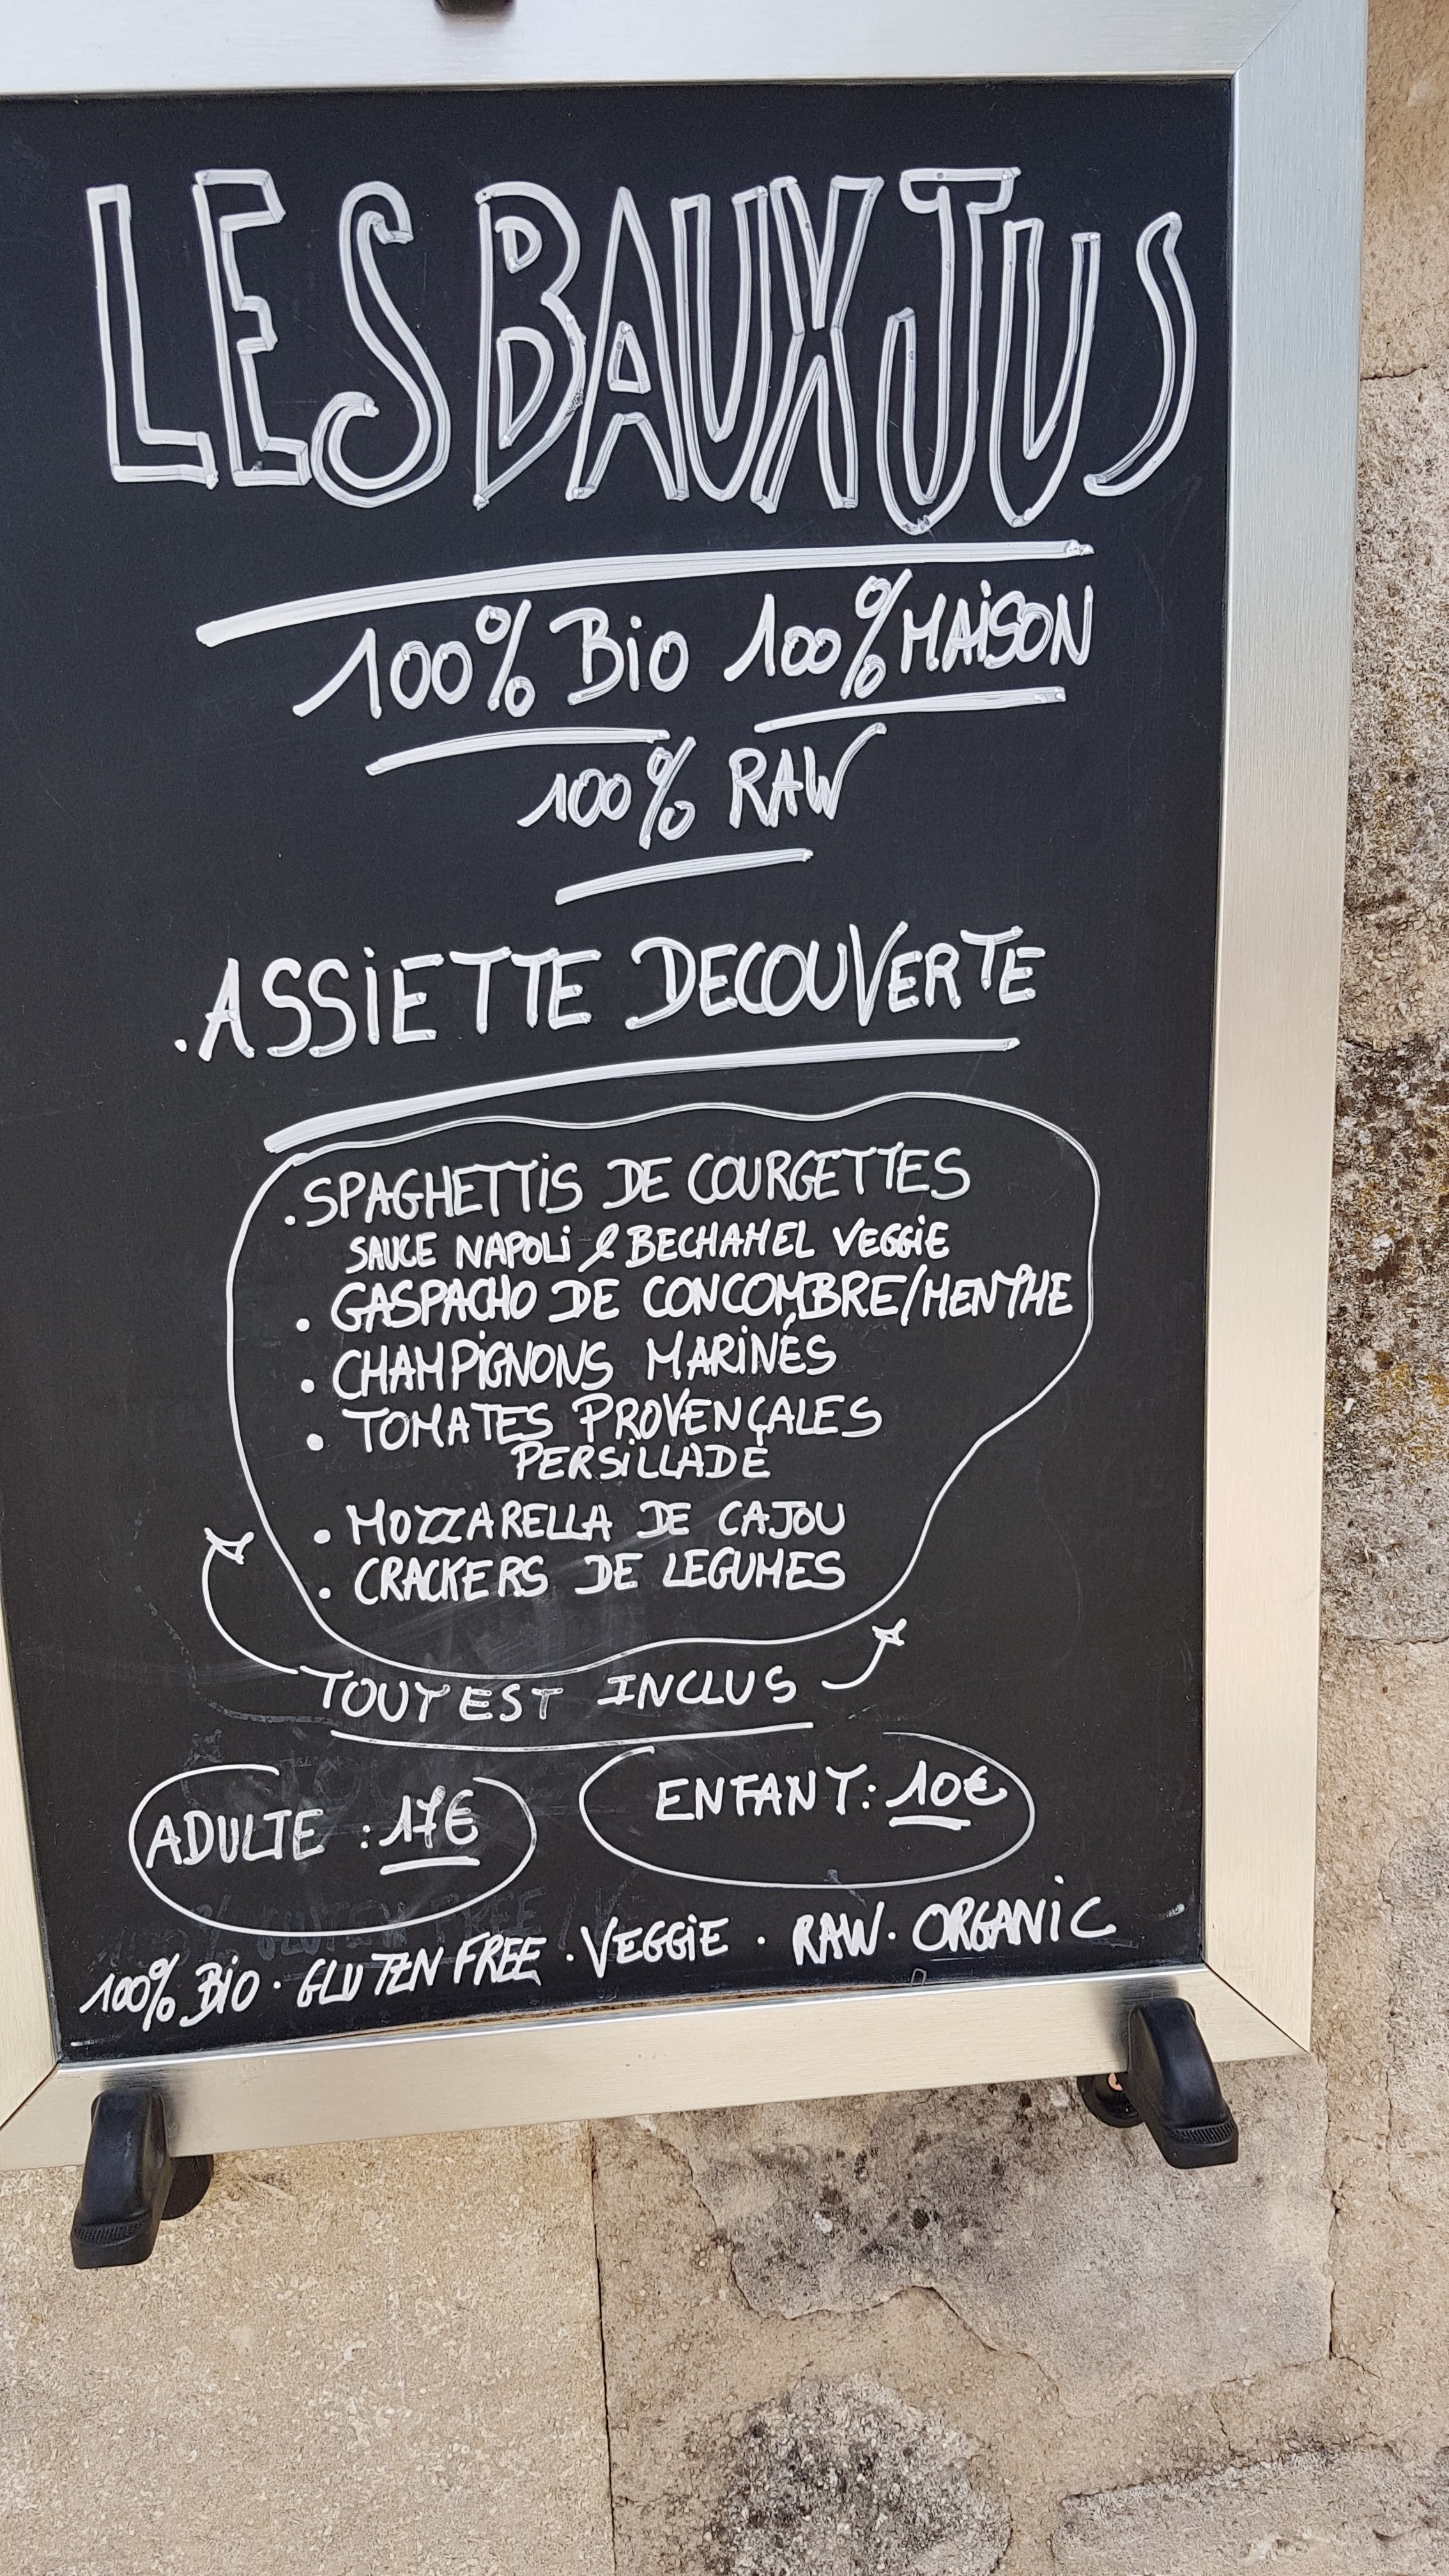 LES BAUX JUS
100% BiO 100% MAiSON
100% RAW
.ASSiETTE DECOUVERTE
.SPAGHETTiS DE COURGETTES
SAUCE NAPOLi & BECHAMEL VEGGiE
. GASPACHO DE CONCOMBRE/MENTHE
. CHAMPiGNONS MARiNÉS
. TOMATES PROVENÇALES
PERSiLLADE
. MOZZARELLA DE CAJOU
. CRACKERS DE LEGUMES
TOUT EST INCLUS
ADULTE : 17€ ENFANT: 10€
100% BiO · GLUTEN FREE · VEGGiE · RAW · ORGANiC